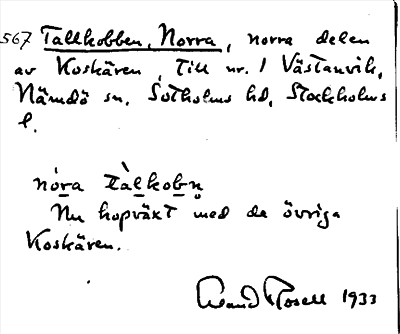 567 Tallkobben, Norra, norra delen
av Koskären, Till nr. 1 Västanvik,
Nämdö sn. Sotholms hd, Stockholms
l.
nóra tàlkobn̥
Nu hopväxt med de övriga
Koskären.
Rosell 1933